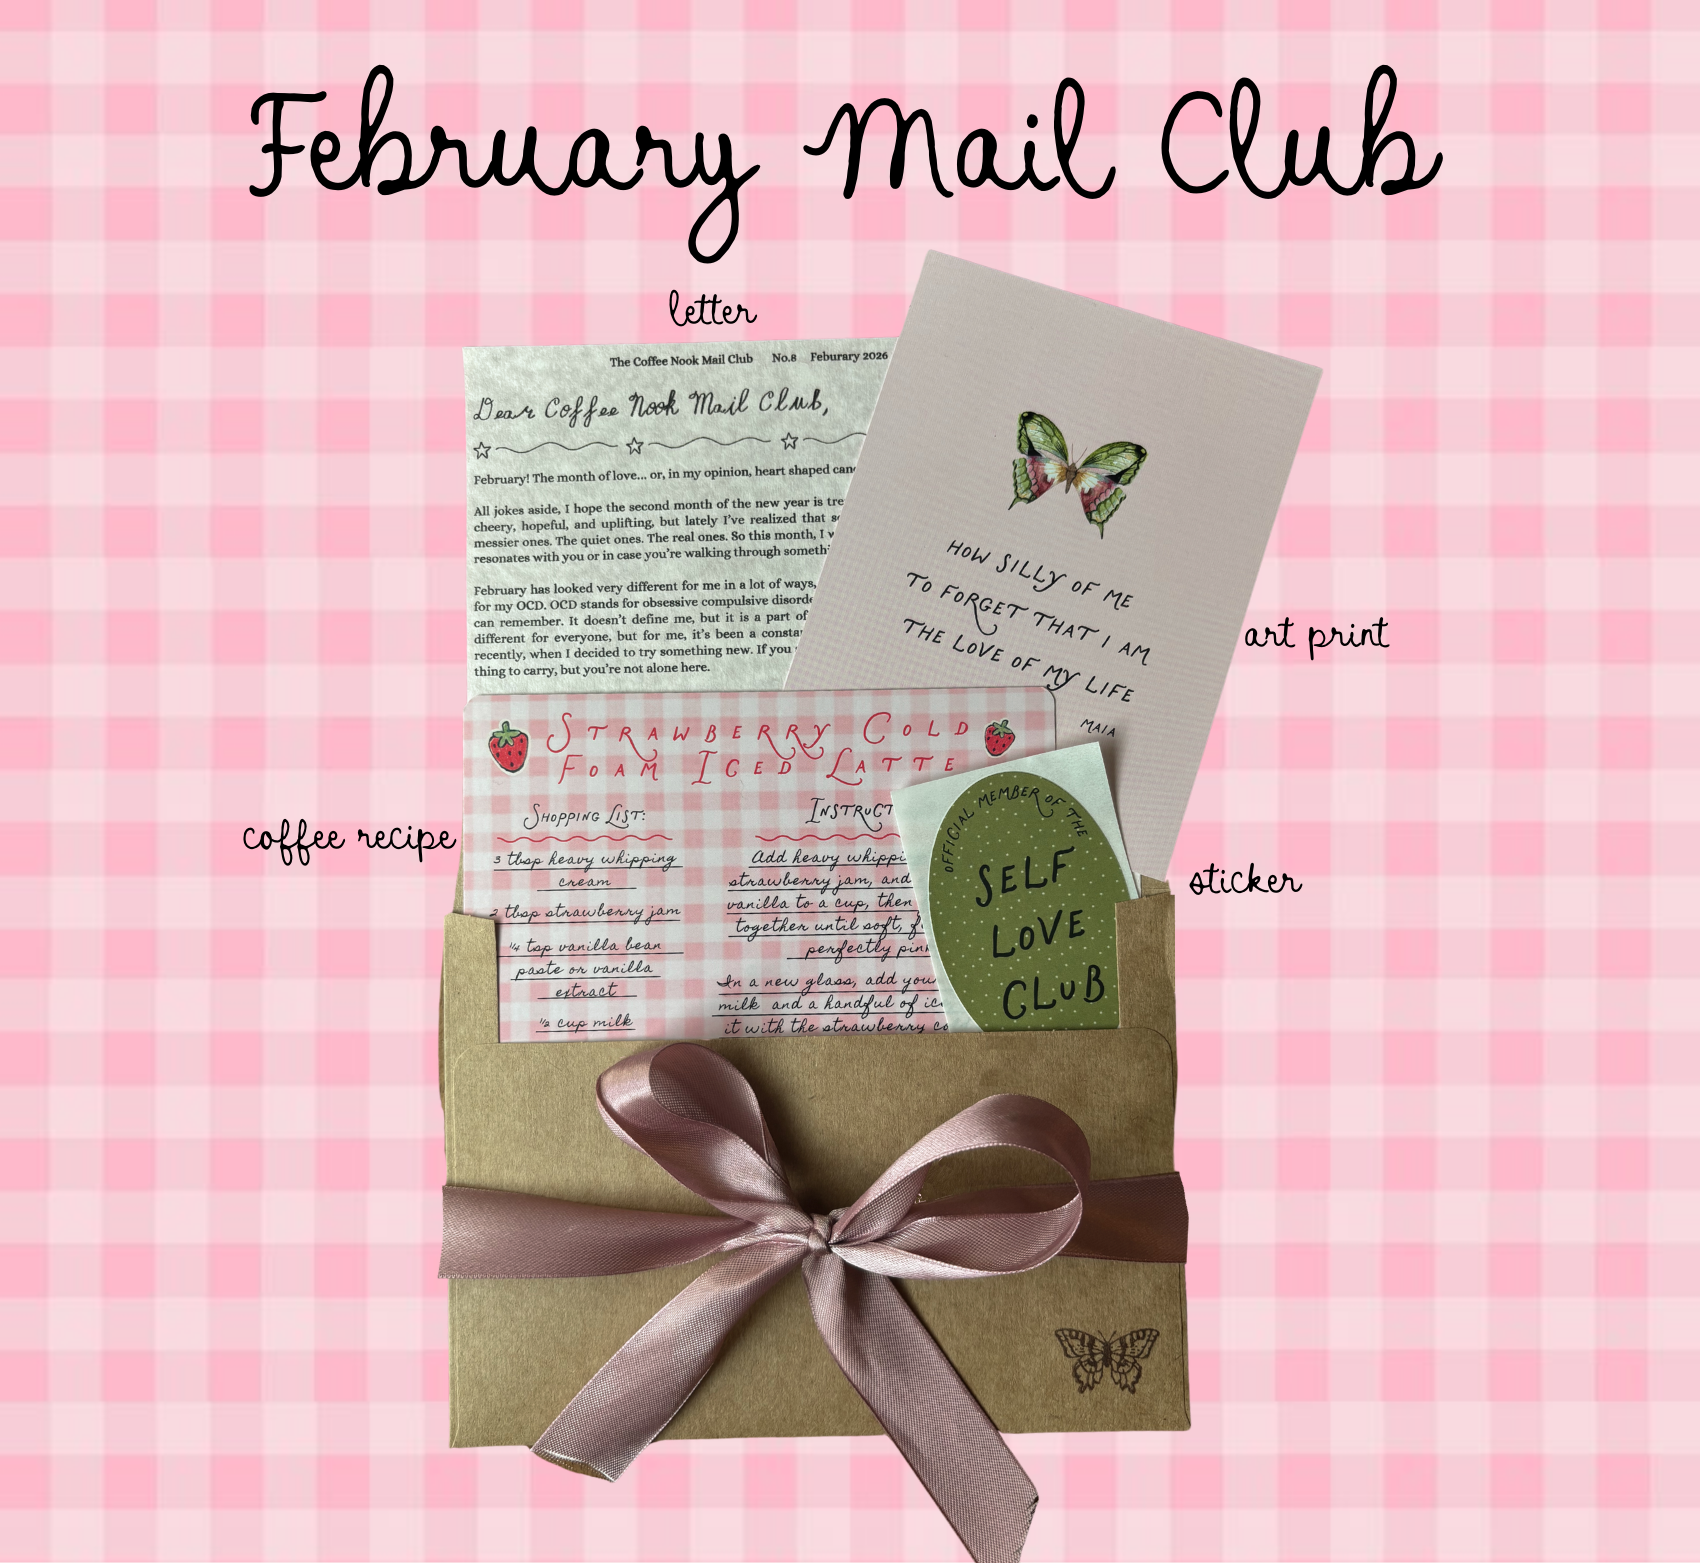 February Mail Club
letter
The Coffee Nook Mail Club No.8 Feburary 2026
Dear Coffee Nook Mail Club,
February! The month of love... or, in my opinion, heart shaped
All jokes aside, I hope the second month of the new year is
cheery, hopeful, and uplifting, but lately I've realized that
messier ones. The quiet ones. The real ones. So this month, I
resonates with you or in case you're walking through
February has looked very different for me in a lot of ways,
for my OCD. OCD stands for obsessive compulsive
can remember. It doesn't define me, but it is a part of
different for everyone, but for me, it's been a
recently, when I decided to try something new. If you
thing to carry, but you're not alone here.
HOW SILLY OF ME
TO FORGET THAT I AM
THE LOVE OF MY LIFE
MAIA
art print
STRAWBERRY COLD
FOAM ICED LATTE
coffee recipe
SHOPPING LIST:
3 tbsp heavy whipping
cream
2 tbsp strawberry jam
1/4 tsp vanilla bean
paste or vanilla
extract
1/2 cup milk
Add heavy
strawberry jam, and
vanilla to a cup, then
together until soft,
perfectly
In a new glass, add
milk and a handful of
it with the strawberry
OFFICIAL MEMBER OF THE
SELF
LOVE
CLUB
sticker